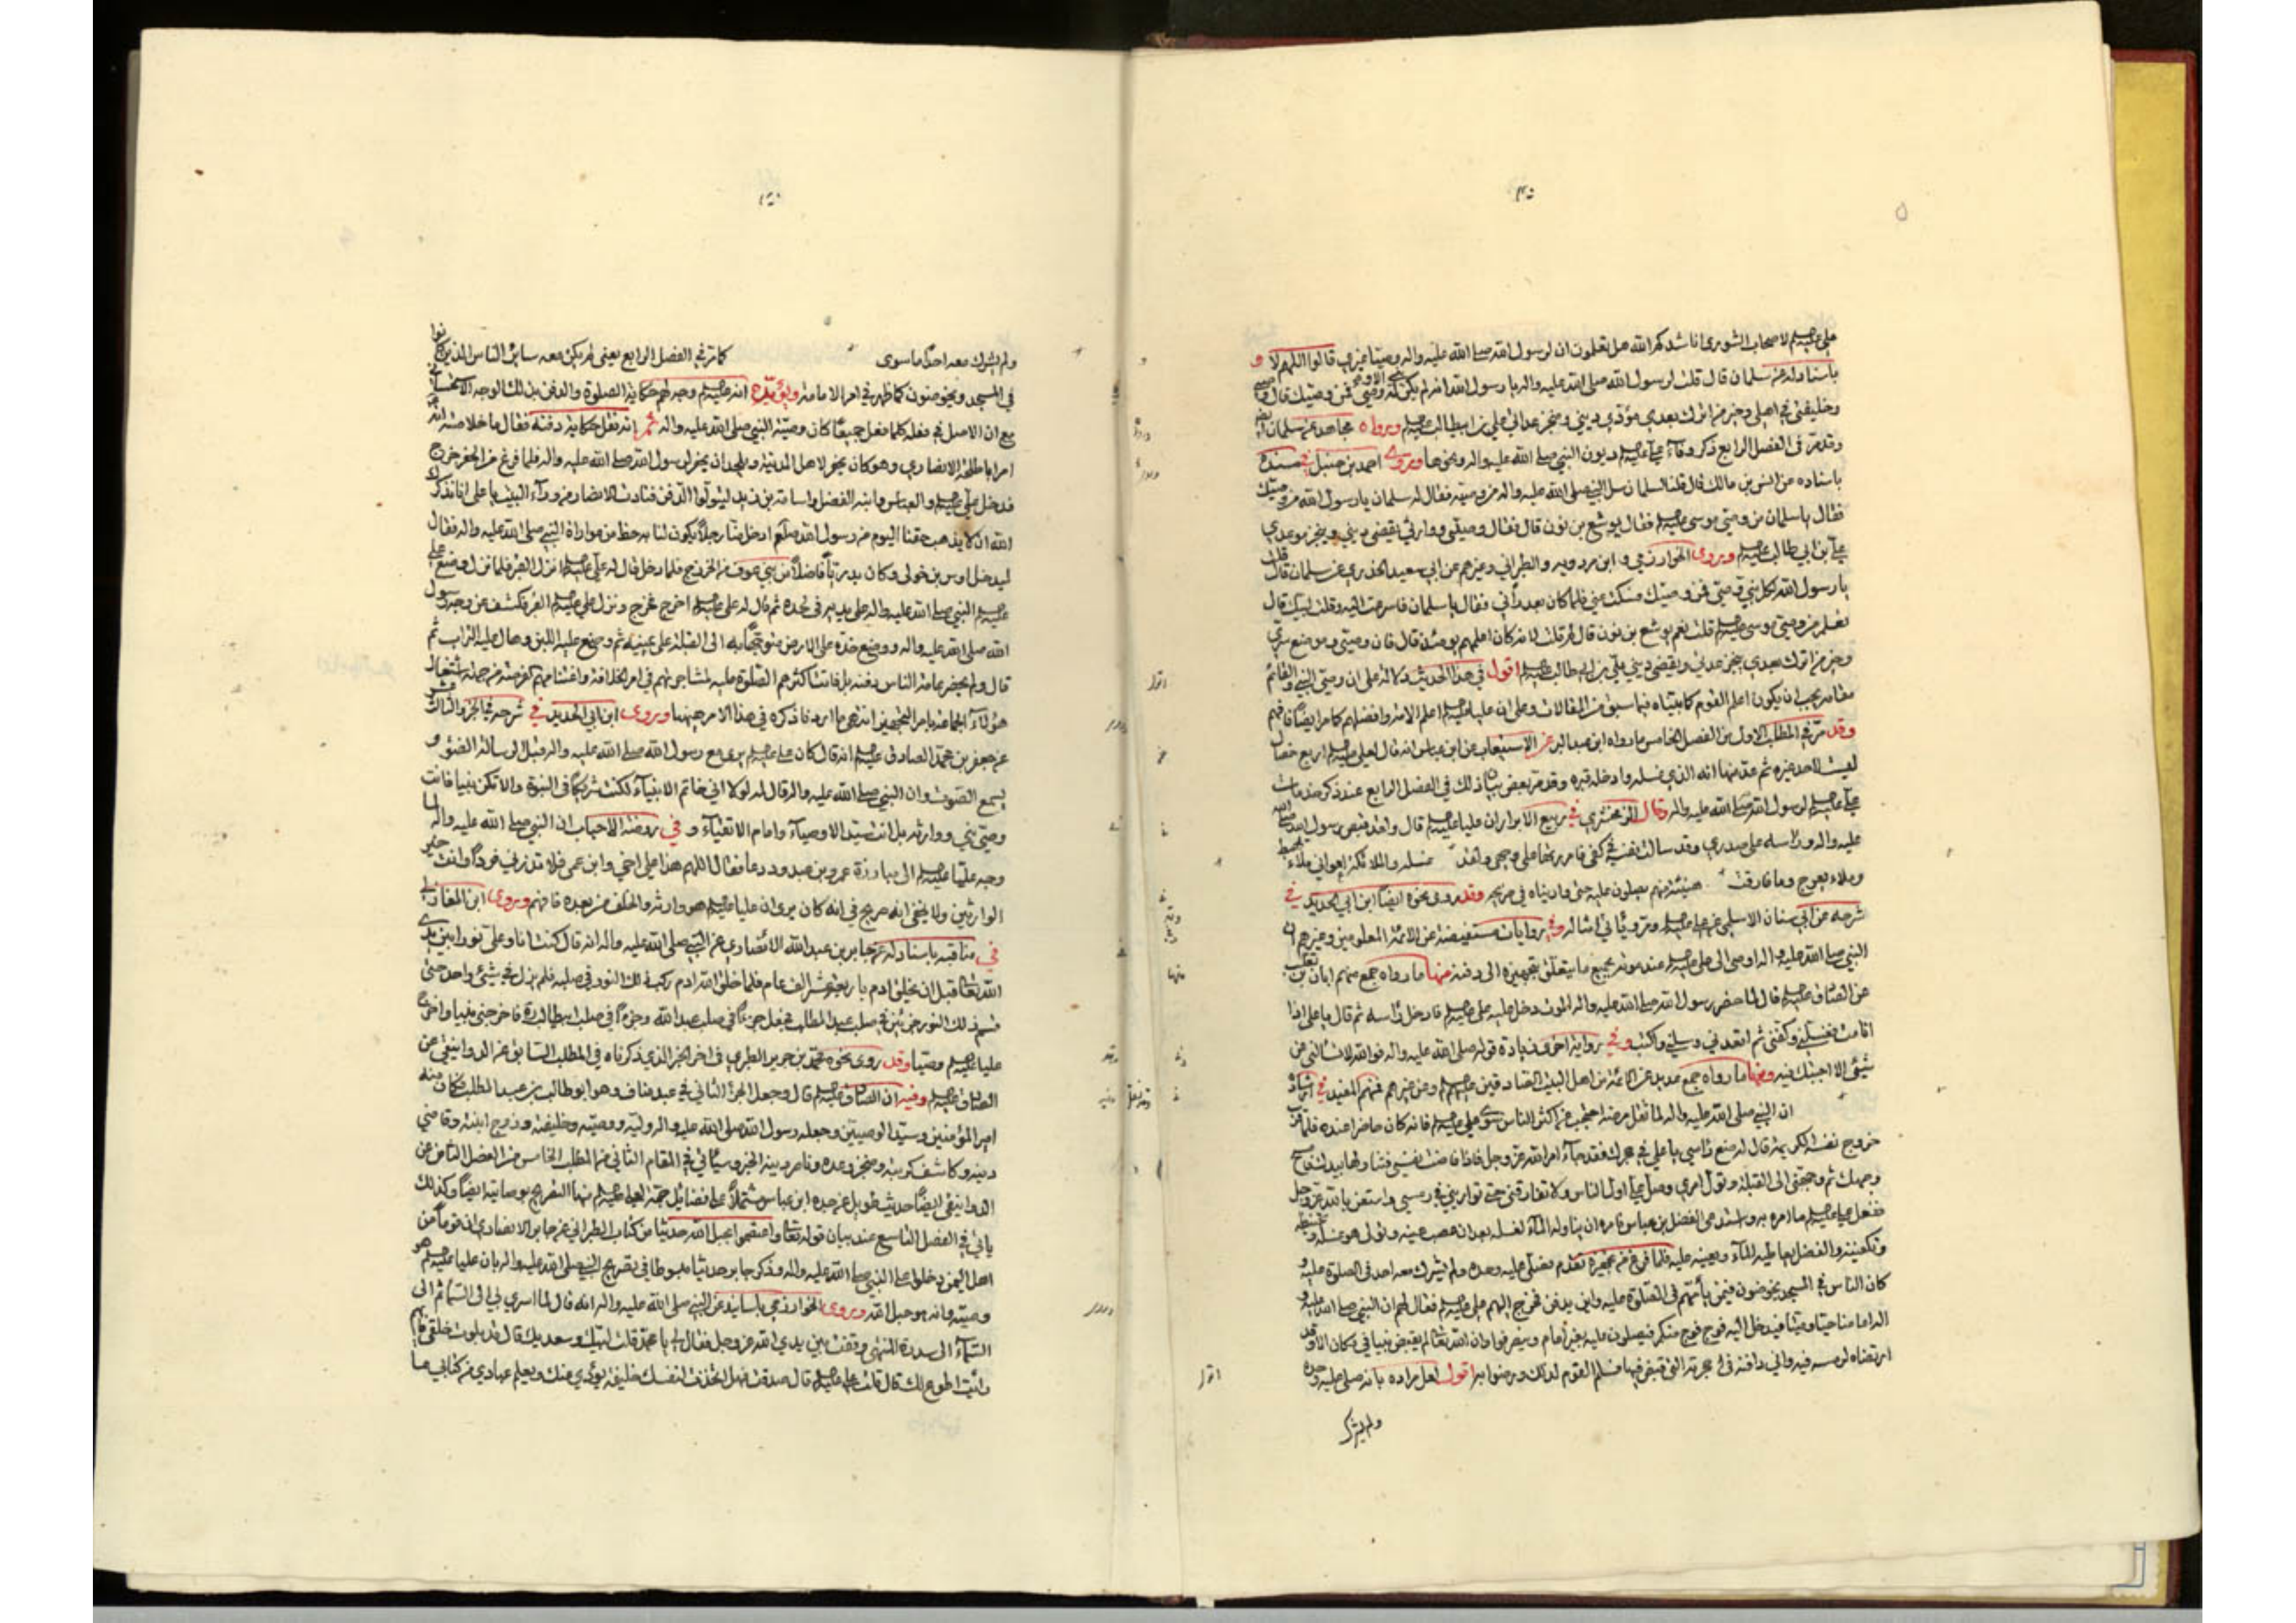 علي عليه السلم لاصحاب الشورى اناشدكم الله هل تعلمون ان لرسول الله صلى الله عليه واله وصيا غيري قالوا اللهم لا و
باسناد له عن سلمان قال قلت لرسول الله صلى الله عليه واله يا رسول الله انه لم يكن نبي الا وله وصي فمن وصيك قال
وخليفتي في اهلي وخير من اترك بعدي مؤدي ديني ومنجز عداتي علي بن ابيطالب عليه السلم ورواه مجاهد عن سلمان
وقد مر في الفصل الرابع ذكر وفاء علي عليه السلم ديون النبي صلى الله عليه واله ونحوها وروى احمد بن حنبل في مسنده
باسناده عن انس بن مالك قال قلنا لسلمان سل النبي صلى الله عليه واله من وصيه فقال له سلمان يا رسول الله من وصيك
فقال يا سلمان من وصي موسى عليه السلم فقال يوشع بن نون قال فقال وصيي ووارثي يقضي ديني وينجز موعدي
علي بن ابي طالب عليه السلم وروى الخوارزمي وابن مردويه والطبراني وغيرهم عن ابي سعيد الخدري عن سلمان قال قلت
يا رسول الله لكل نبي وصي فمن وصيك فسكت عني فلما كان بعد رآني فقال يا سلمان فاسرعت اليه وقلت لبيك قال
تعلم من وصي موسى عليه السلم قلت نعم يوشع بن نون قال لم قلت لانه كان اعلمهم يومئذ قال فان وصيي وموضع سري
وخير من اترك بعدي ينجز عدتي ويقضي ديني علي بن ابي طالب عليه السلم اقول في هذا الحديث دلالة على ان وصي النبي والقائم
مقامه يجب ان يكون اعلم القوم كما بيناه فيما سبق من المقالات وعلى ان عليا عليه السلم اعلم الامة وافضلهم كما مر ايضا فافهم
وقد مر في المطلب الاول من الفصل الخامس ما رواه ابن عبد البر عن الاستيعاب عن ابن عباس انه قال لعلي عليه السلم اربع خصال
ليست لاحد غيره ثم عد منها انه الذي غسله وادخله قبره وقد مر بعض بيان ذلك في الفصل الرابع عند ذكر خدمات
علي عليه السلم لرسول الله صلى الله عليه واله وقال الزمخشري في ربيع الابرار ان عليا عليه السلم قال ولقد قبض رسول الله صلى الله
عليه واله وراسه على صدري وقد سالت نفسه في كفي فامررتها على وجهي ولقد غسله والملائكة اعواني ملاء يهبط
وملاء يعرج وما فارقت هينمة منهم يصلون عليه حتى واريناه في ضريحه وقد روى نحوه ايضا ابن ابي الحديد في
شرحه عن ابي سنان الاسلمي عن علي عليه السلم ومر ويأتي امثاله وفي روايات مستفيضة عن الائمة المعلومين وغيرهم ان
النبي صلى الله عليه واله اوصى الى علي عليه السلم عند موته بجميع ما يتعلق بتجهيزه الى دفنه منها ما رواه جمع منهم ابان بن تغلب
عن الصادق عليه السلم قال لما حضر رسول الله صلى الله عليه واله الموت دخل عليه علي عليه السلم فادخل رأسه ثم قال يا علي اذا
انا مت فغسلني وكفني ثم اقعدني وسلني واكتب وفي رواية اخرى زيادة قوله صلى الله عليه واله فوالله لا تسألني عن
شيء الا اجبتك فيه ومنها ما رواه جمع عديد عن الائمة من اهل البيت الصادقين عليهم السلم ومن غيرهم فمنهم المفيد في ارشاده
ان النبي صلى الله عليه واله لما ثقل مرضه احتجب عن اكثر الناس سوى علي عليه السلم فانه كان حاضرا عنده فلما قرب
خروج نفسه الكريمة قال له ضع رأسي يا علي في حجرك فقد جاء امر الله عز وجل فاذا فاضت نفسي فتناولها بيدك فامسح
وجهك ثم وجهني الى القبلة وتول امري وصل علي اول الناس ولا تفارقني حتى تواريني في رمسي واستعن بالله عز وجل
ففعل علي عليه السلم ما امره به واستدعى الفضل بن عباس فامره ان يناوله الماء لغسله بعد ان عصب عينه وتولى هو غسله وتحنيطه
وتكفينه والفضل يعاطيه الماء ويعينه عليه فلما فرغ من تجهيزه تقدم فصلى عليه وحده ولم يشرك معه احد في الصلوة عليه و
كان الناس في المسجد يخوضون فيمن يأتهم في الصلوة عليه واين يدفن فخرج اليهم علي عليه السلم فقال لهم ان النبي صلى الله عليه و
اله امامنا حيا وميتا فيدخل اليه فوج فوج منكم فيصلون عليه بغير امام وينصرفوا وان الله تعالى لم يقبض نبيا في مكان الا وقد
ارتضاه لرمسه فيه واني دافنه في حجرته التي قبض فيها فسلم القوم لذلك ورضوا به اقول لعل مراده بانه صلى عليه وحده
ولم يشرك
ولم يشرك معه احدا ما سوى كما مر في الفصل الرابع يعني لم يكن معه سائر الناس الذين كانوا
في المسجد ويخوضون كما ظهر في امر الامامة ويؤيده انه عليه السلم وجه لهم حكاية الصلوة والدفن بذلك الوجه
مع ان الاصل في فعله كلما فعل جميعا كان وصية النبي صلى الله عليه واله ثم انه نقل حكاية دفنه فقال ما خلاصته انه
امر ابا طلحة الانصاري وهو كان يحفر لاهل المدينة ويلحد ان يحفر لرسول الله صلى الله عليه واله فلما فرغ من الحفر خرج
فدخل علي عليه السلم والعباس وابنه الفضل واسامة بن زيد ليتولوا الدفن فنادت الانصار من وراء البيت يا علي انا نذكرك
الله ان لا يذهب حقنا اليوم من رسول الله صلعم ادخل منا رجلا يكون لنا به حظ من مواراة النبي صلى الله عليه واله فقال
ليدخل اوس بن خولي وكان بدريا فاضلا من بني عوف من الخزرج فلما دخل قال له علي عليه السلم انزل القبر فنزل ووضع علي
عليه السلم النبي صلى الله عليه واله على يديه في لحده ثم قال له علي عليه السلم اخرج فخرج ونزل علي عليه السلم القبر فكشف عن وجه رسول
الله صلى الله عليه واله ووضع خده على الارض متوجها به الى القبلة على يمينه ثم وضع عليه اللبن وهال عليه التراب ثم
قال ولم يحضر عامة الناس دفنه بل فاتت اكثرهم الصلوة عليه لمشاجرتهم في امر الخلافة واغتنامهم كفرصة من جملة اشتغال
هؤلاء الجماعة بامر التجهيز انتهى ما اردنا ذكره في هذا الامر جميعا وروى ابن ابي الحديد في شرحه في الجزء الثالث عشر
عن جعفر بن محمد الصادق عليه السلم انه قال كان علي عليه السلم يرى مع رسول الله صلى الله عليه واله قبل الرسالة الضوء و
يسمع الصوت وان النبي صلى الله عليه واله قال له لولا اني خاتم الانبياء لكنت شريكا في النبوة والا تكن نبيا فانت
وصي نبي ووارثه بل انت سيد الاوصياء وامام الاتقياء وفي روضة الاحباب ان النبي صلى الله عليه واله لما
وجه عليا عليه السلم الى مبارزة عمرو بن عبدود دعا فقال اللهم هذا علي اخي وابن عمي فلا تذرني فردا وانت خير
الوارثين ولا يخفى انه صريح في انه كان يرى ان عليا عليه السلم هو وارثه والخلف من بعده فافهم وروى ابن المغازلي
في مناقبه باسناد له عن جابر بن عبد الله الانصاري عن النبي صلى الله عليه واله انه قال كنت انا وعلي نورا بين يدي
الله تعالى قبل ان يخلق ادم باربعة عشر الف عام فلما خلق الله ادم ركب ذلك النور في صلبه فلم يزل في شيء واحد حتى
قسم ذلك النور جزئين في صلب عبد المطلب فجعل جزءا في صلب عبد الله وجزءا في صلب ابيطالب فاخرجني نبيا واخرج
عليا عليه السلم وصيا وقد روى نحوه محمد بن جرير الطبري في اخر الخبر الذي ذكرناه في المطلب السابق عن الدوانيقي عن
الصادق عليه السلم وفيه ان الصادق عليه السلم قال وجعل الجزء الثاني في عبد مناف وهو ابو طالب بن عبد المطلب فكان منه
امير المؤمنين وسيد الوصيين وجعله رسول الله صلى الله عليه واله وليه ووصيه وخليفته وزوج ابنته وقاضي
دينه وكاشف كربته ومنجز وعده وناصر دينه الخبر وسيأتي في المقام الثاني من المطلب الخامس من الفصل الثامن عن
الدوانيقي ايضا حديث طويل عن جده ابن عباس مشتملا على فضائل جمة لعلي عليه السلم فيها التصريح بوصايته ايضا وكذلك
يأتي في الفصل التاسع عند بيان قوله تعالى واعتصموا بحبل الله حديثا من كتاب الطبراني عن جابر الانصاري ان قوما من
اهل اليمن دخلوا على النبي صلى الله عليه واله وذكر جابر حديثا مبسوطا في تصريح النبي صلى الله عليه واله بان عليا عليه السلم هو
وصيه وانه هو حبل الله وروى الخوارزمي باسانيد عن النبي صلى الله عليه واله انه قال لما اسري بي الى السماء ثم الى
السماء الى سدرة المنتهى وقفت بين يدي الله عز وجل فقال لي يا محمد قلت لبيك وسعديك قال قد بلوت خلقي فايهم
رأيت اطوع لك قال قلت علي عليه السلم قال صدقت فهل اتخذت لنفسك خليفة يؤدي عنك ويعلم عبادي من كتابي ما